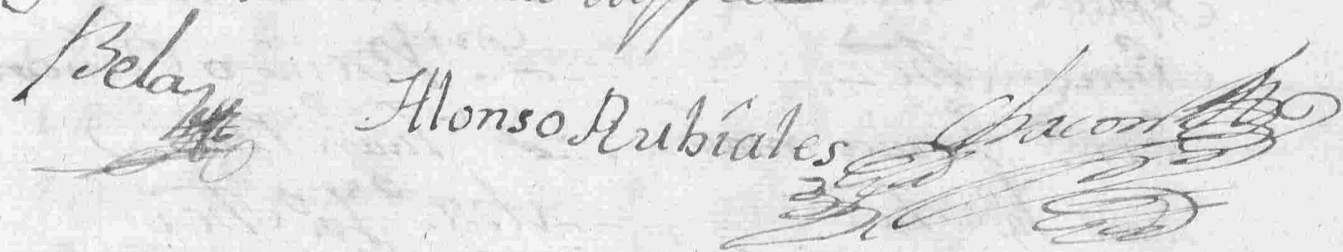 Bela
Alonso Rubiales
Chacon